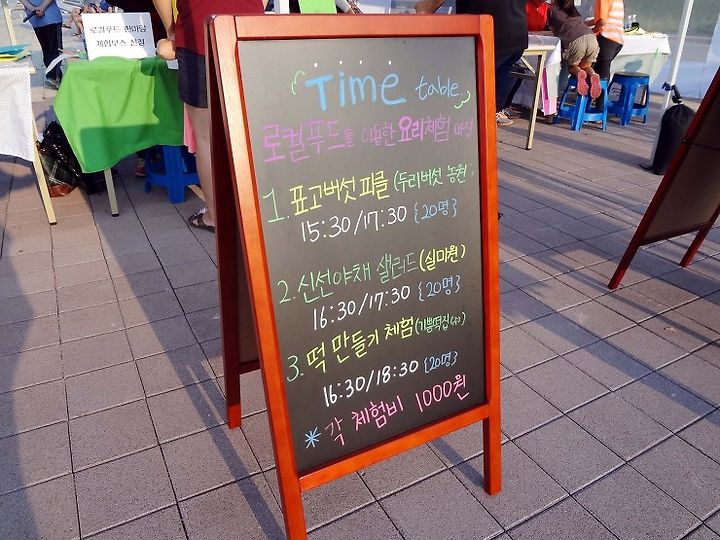 로컬푸드 한마당
체험부스 신청
Time table
로컬푸드를 이용한 요리체험 마당
1. 표고버섯 피클 (두리버섯 농원)
15:30/17:30 {20명}
2. 신선야채 샐러드 (실마원)
16:30/17:30 {20명}
3. 떡 만들기 체험 (기쁨떡집(주))
16:30/18:30 {20명}
* 각 체험비 1000원